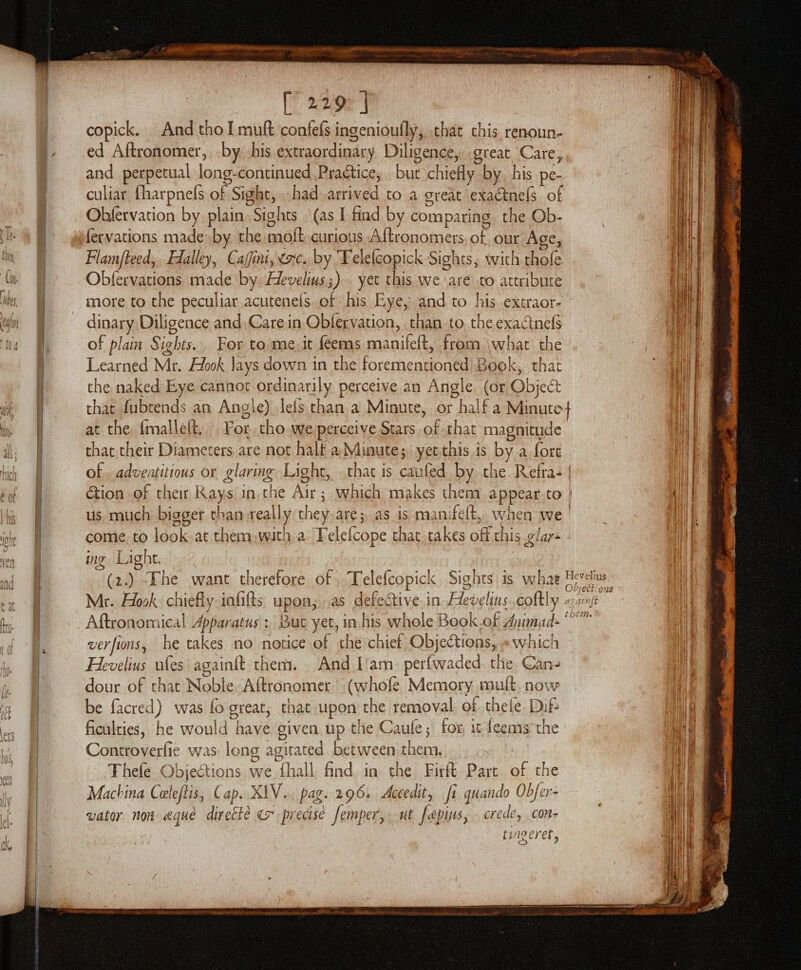 [ 229 ]
copick. And tho I muſt confeſs ingeniouſly, that this renoun-
ed Aſtronomer, by his extraordinary Diligence, great Care,
and perpetual long-continued Practice, but chiefly by his pe-
culiar ſharpneſs of Sight, had arrived to a great exactneſs of
Obſervation by plain Sights (as I find by comparing the Ob-
ſervations made by the moſt curious Aſtronomers of our Age,
Flamſteed, Halley, Caſſini, &c. by Teleſcopick Sights, with thoſe
Obſervations made by Hevelius;) yet this we are to attribute
more to the peculiar acuteneſs of his Eye, and to his extraor-
dinary Diligence and Care in Obſervation, than to the exactneſs
of plain Sights. For to me it ſeems manifeſt, from what the
Learned Mr. Hook lays down in the forementioned Book, that
the naked Eye cannot ordinarily perceive an Angle (or Object
that ſubtends an Angle) leſs than a Minute, or half a Minute
at the ſmalleſt. For tho we perceive Stars of that magnitude
that their Diameters are not half a Minute; yet this is by a ſort
of adventitious or glaring Light, that is cauſed by the Refra-
ction of their Rays in the Air; which makes them appear to
us much bigger than really they are; as is manifeſt, when we
come to look at them with a Teleſcope that takes off this glar-
ing Light.
(2.) The want therefore of Teleſcopick Sights is what
Hevelius
Objections
againſt
them.
Mr. Hook chiefly inſiſts upon, as defective in Hevelius coſtly
Aſtronomical Apparatus: But yet, in his whole Book of Animad-
verſions, he takes no notice of the chief Objections, which
Hevelius uſes againſt them. And I am perſwaded the Can-
dour of that Noble Aſtronomer (whoſe Memory muſt now
be ſacred) was ſo great, that upon the removal of theſe Dif-
ficulties, he would have given up the Cauſe; for it ſeems the
Controverſie was long agitated between them.
Theſe Objections we ſhall find in the Firſt Part of the
Machina Cœleſtis, Cap. XIV. pag. 296. Accedit, ſi quando Obſer-
vator non æquè directè & preciſè ſemper, ut ſæpius, crede, con-
tingeret,